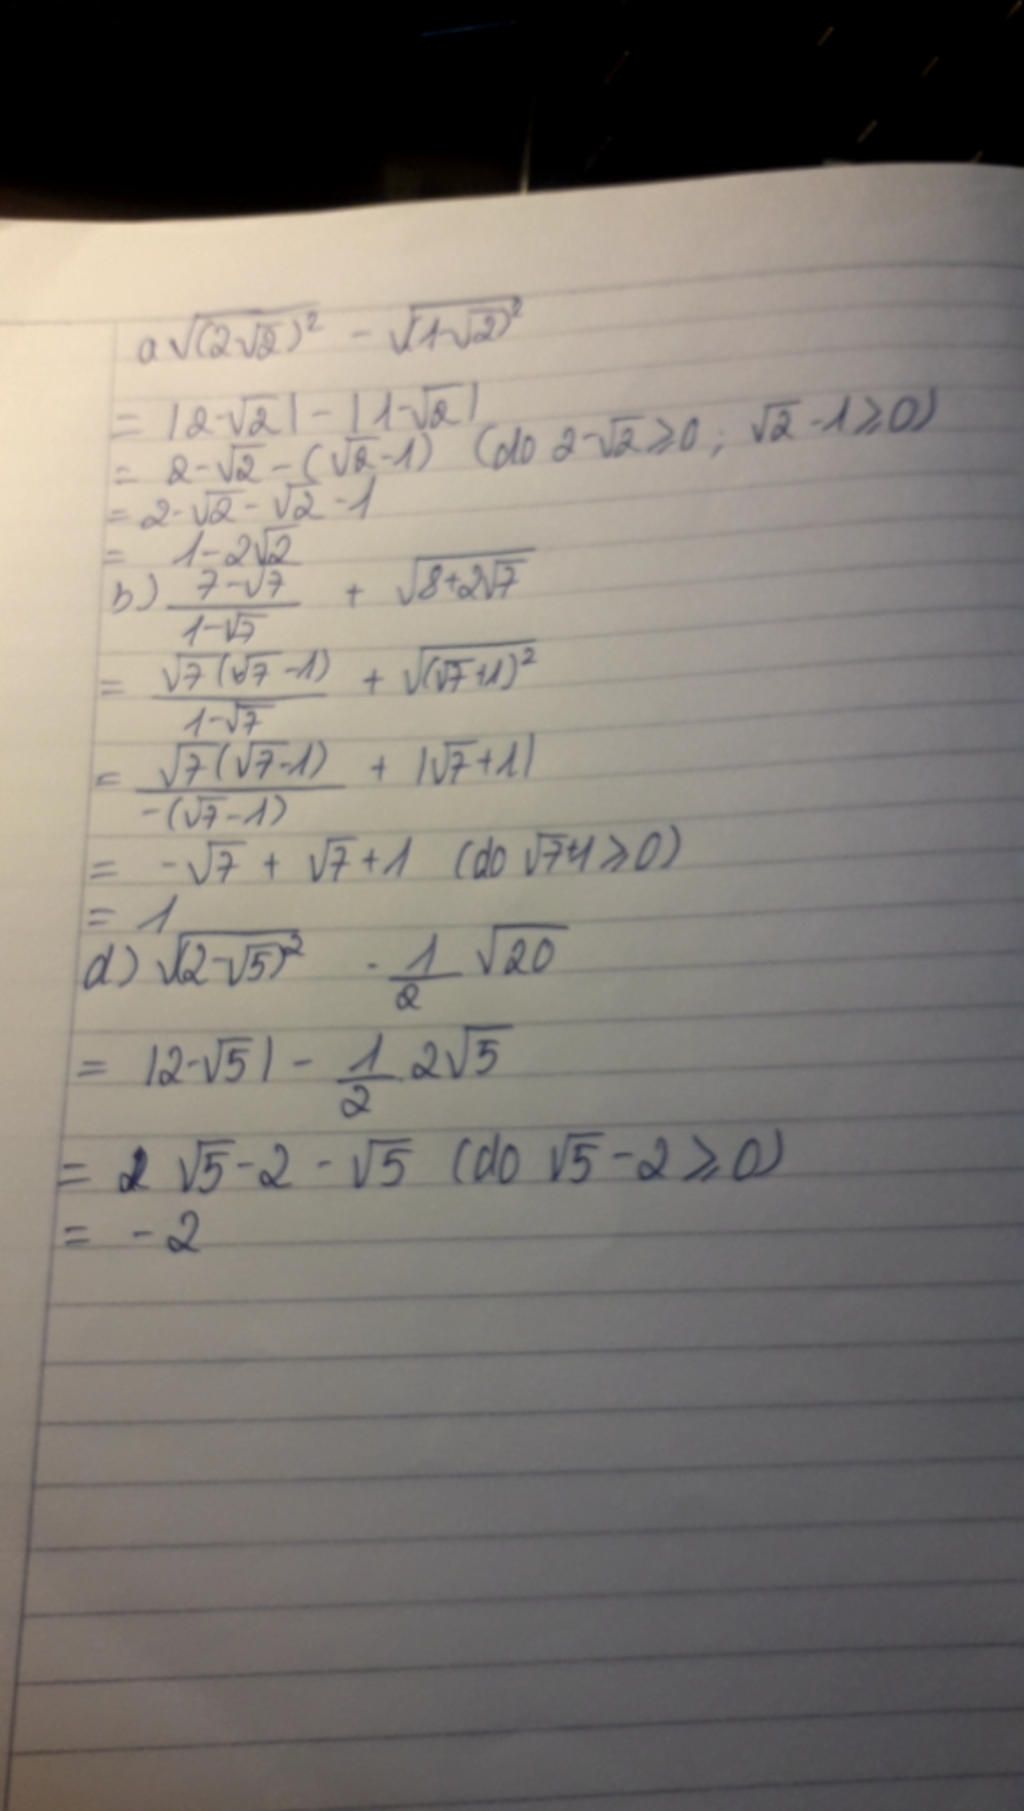 a √(2-√2)² - √(1-√2)²
= |2-√2| - |1-√2|
= 2-√2 - (√2-1) (do 2-√2 ≥ 0; √2-1 ≥ 0)
= 2-√2 - √2 - 1
= 1-2√2
b) (7-√7)/(1-√7) + √(8+2√7)
= √7(√7-1)/(1-√7) + √(√7+1)²
= √7(√7-1)/-(√7-1) + |√7+1|
= -√7 + √7+1 (do √7+1 ≥ 0)
= 1
d) √(2-√5)² - 1/2 √20
= |2-√5| - 1/2 . 2√5
= √5-2 - √5 (do √5-2 ≥ 0)
= -2